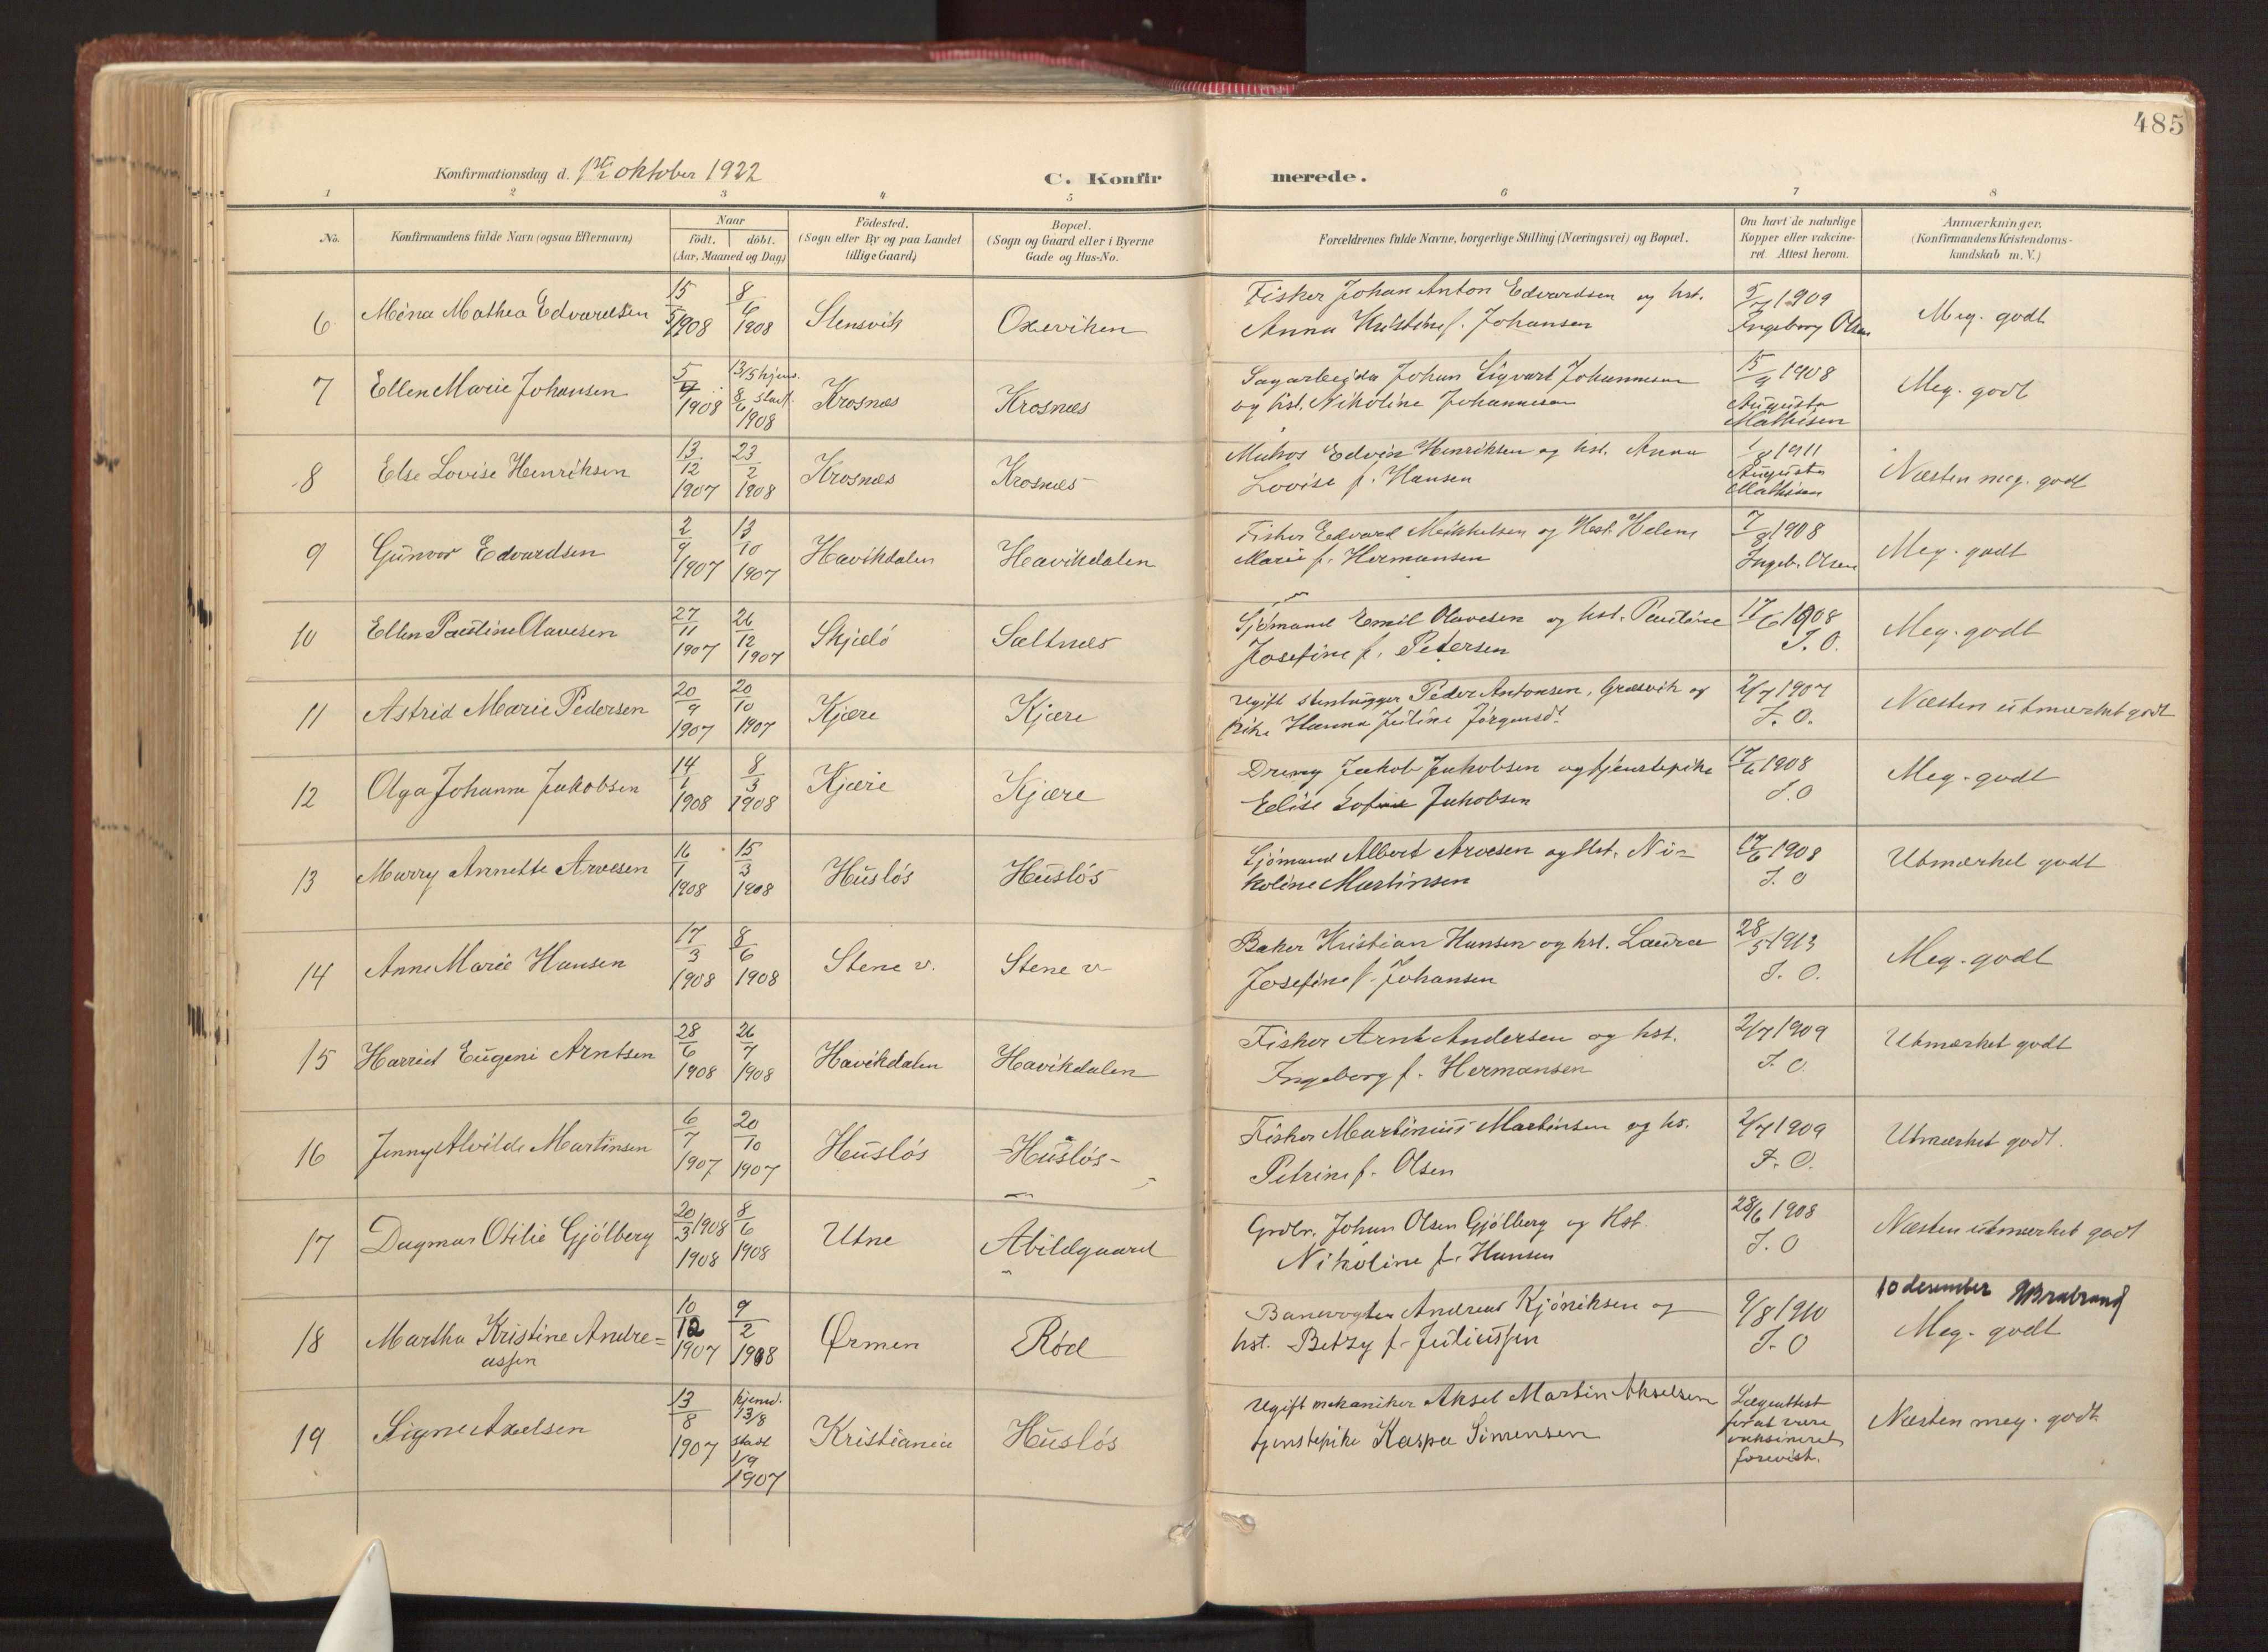 485
Konfirmationsdag d. 1ste oktober 1922
C. Konfirmerede.
1 2 3 4 5 6 7 8
No.
Konfirmandens fulde Navn (ogsaa Efternavn)
Naar
født. | döbt.
(Aar, Maaned og Dag)
Födested.
(Sogn eller By og paa Landet
tillige Gaard)
Bopæl.
(Sogn og Gaard eller i Byerne
Gade og Hus-No.
Forældrenes fulde Navne, borgerlige Stilling (Næringsvei) og Bopæl.
Om havt de naturlige
Kopper eller vakcine-
ret. Attest herom.
Anmærkninger.
(Konfirmandens Kristendoms-
kundskab m. V.)
6 Mona Mathea Edvardsen 15/5 1908 8/6 1908 Stensvik Oxeviken
Fisker Johan Anton Edvardsen og hst.
Anna Kristine f. Johansen
5/7 1909
Ingeborg Olsen
Meg. godt
7 Ellen Marie Johansen 5/4 1908 13/5 hjem. 8/6 stadf. 1908 Krosnæs Krosnæs
Sagarbeider Johan Sigvart Johannesen
og hst. Nikoline Johannesen
15/9 1908
Augusta
Mathisen
Meg. godt
8 Else Lovise Henriksen 13/12 1907 23/2 1908 Krosnæs Krosnæs
Matros Edvin Henriksen og hst. Anna
Lovise f. Hansen
1/8 1911
Augusta
Mathisen
Næsten meg. godt
9 Gunvor Edvardsen 2/9 1907 13/10 1907 Havikdalen Havikdalen
Fisker Edvard Meikkelsen og Hst. Helene
Marie f. Hermansen
7/8 1908
Ingeb. Olsen
Meg. godt
10 Ellen Pauline Olavesen 27/11 1907 26/12 1907 Skjælö Saltnæs
Sjömand Emil Olavesen og hst. Pauline
Josefine f. Petersen
17/6 1908
I. O.
Meg. godt
11 Astrid Marie Pedersen 20/9 1907 20/10 1907 Kjære Kjære
Ugift stenhugger Peder Antonsen, Græsvik og
pike Hanna Juline Jörgensdt.
2/7 1907
I. O.
Næsten utmærket godt
12 Olga Johanna Jakobsen 14/1 1908 8/3 1908 Kjære Kjære
Dreng Jakob Jakobsen og tjenstepike
Elise Sofie Jakobsen
17/6 1908
I. O
Meg. godt
13 Marry Annette Arvesen 16/1 1908 15/3 1908 Huslös Huslös
Sjömand Albert Arvesen og Hst. Ni-
koline Martinsen
17/6 1908
I. O
Utmærket godt
14 Anne Marie Hansen 17/3 1908 8/6 1908 Stene v. Stene v
Baker Kristian Hansen og hst. Laura
Josefine f. Johansen
28/5 1913
I. O.
Meg. godt
15 Harriet Eugeni Arntsen 28/6 1908 26/7 1908 Havikdalen Havikdalen
Fisker Arnt Andersen og hst.
Ingeborg f. Hermansen
2/7 1909
I. O.
Utmærket godt
16 Jenny Alvilde Martinsen 6/7 1907 20/10 1907 Huslös -Huslös-
Fisker Martinius Martinsen og hs.
Petrine f. Olsen
2/7 1909
I. O.
Utmærket godt.
17 Dagmar Otilie Gjölberg 20/3 1908 1908 8/6 1908 Utne Abildgaard
Grdbr. Johan Olsen Gjölberg og Hst.
Nikoline f. Hansen
28/6 1908
I. O
Næsten utmærket godt
18 Martha Kristine Andre=
assen 10/12 1907 9/2 1908 Ørmen Rød
Banevogter Andreas Kjöniksen og
hst. Betzy f. Juliussen
9/8 1910
I. O
10 desember
Meg. godt
19 Signe Axelsen 13/8 1907 hjemd. 13/8 stadf 1/9 1907 Kristiania Huslös
Ugift mekaniker Aksel Martin Akselsen
tjenstepike Kaspa Simensen
Lægeattest
for at være
vaksineret
forevist.
Næsten meg. godt